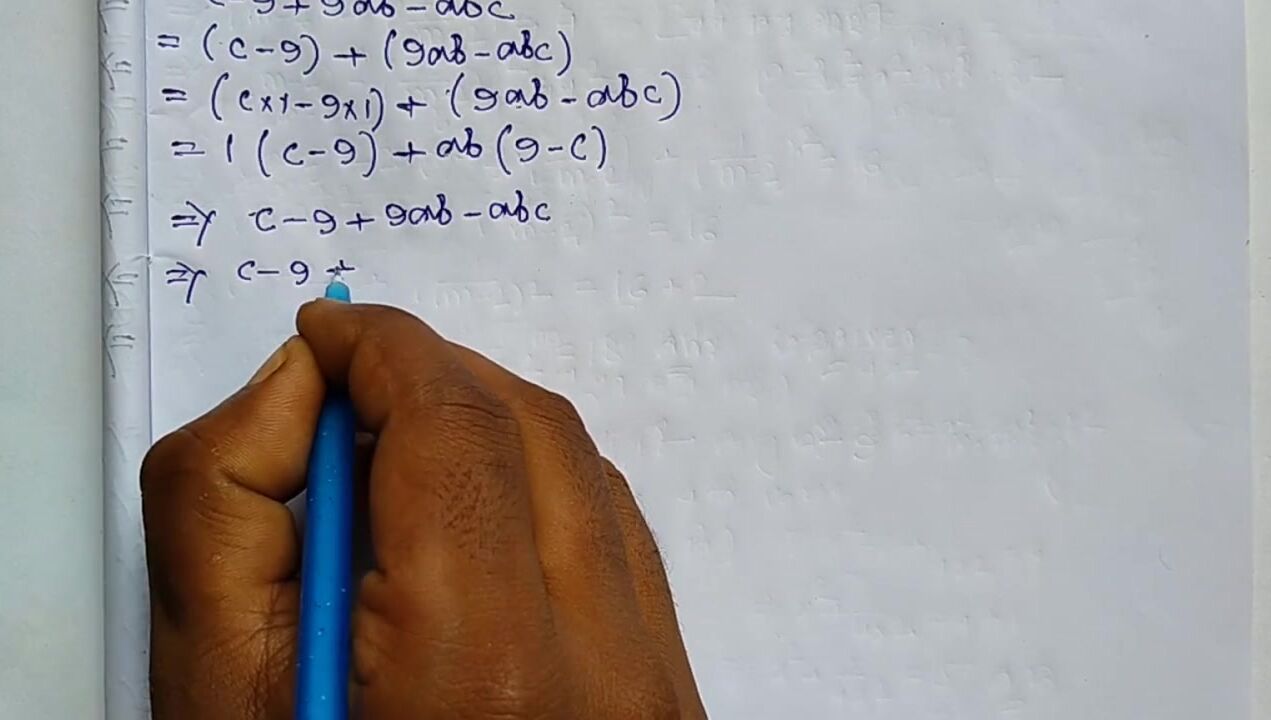 c-9+9ab-abc
= (c-9) + (9ab-abc)
= (c×1-9×1) + (9ab-abc)
= 1 (c-9) + ab (9-c)
⇒ c-9+9ab-abc
⇒ c-9 +